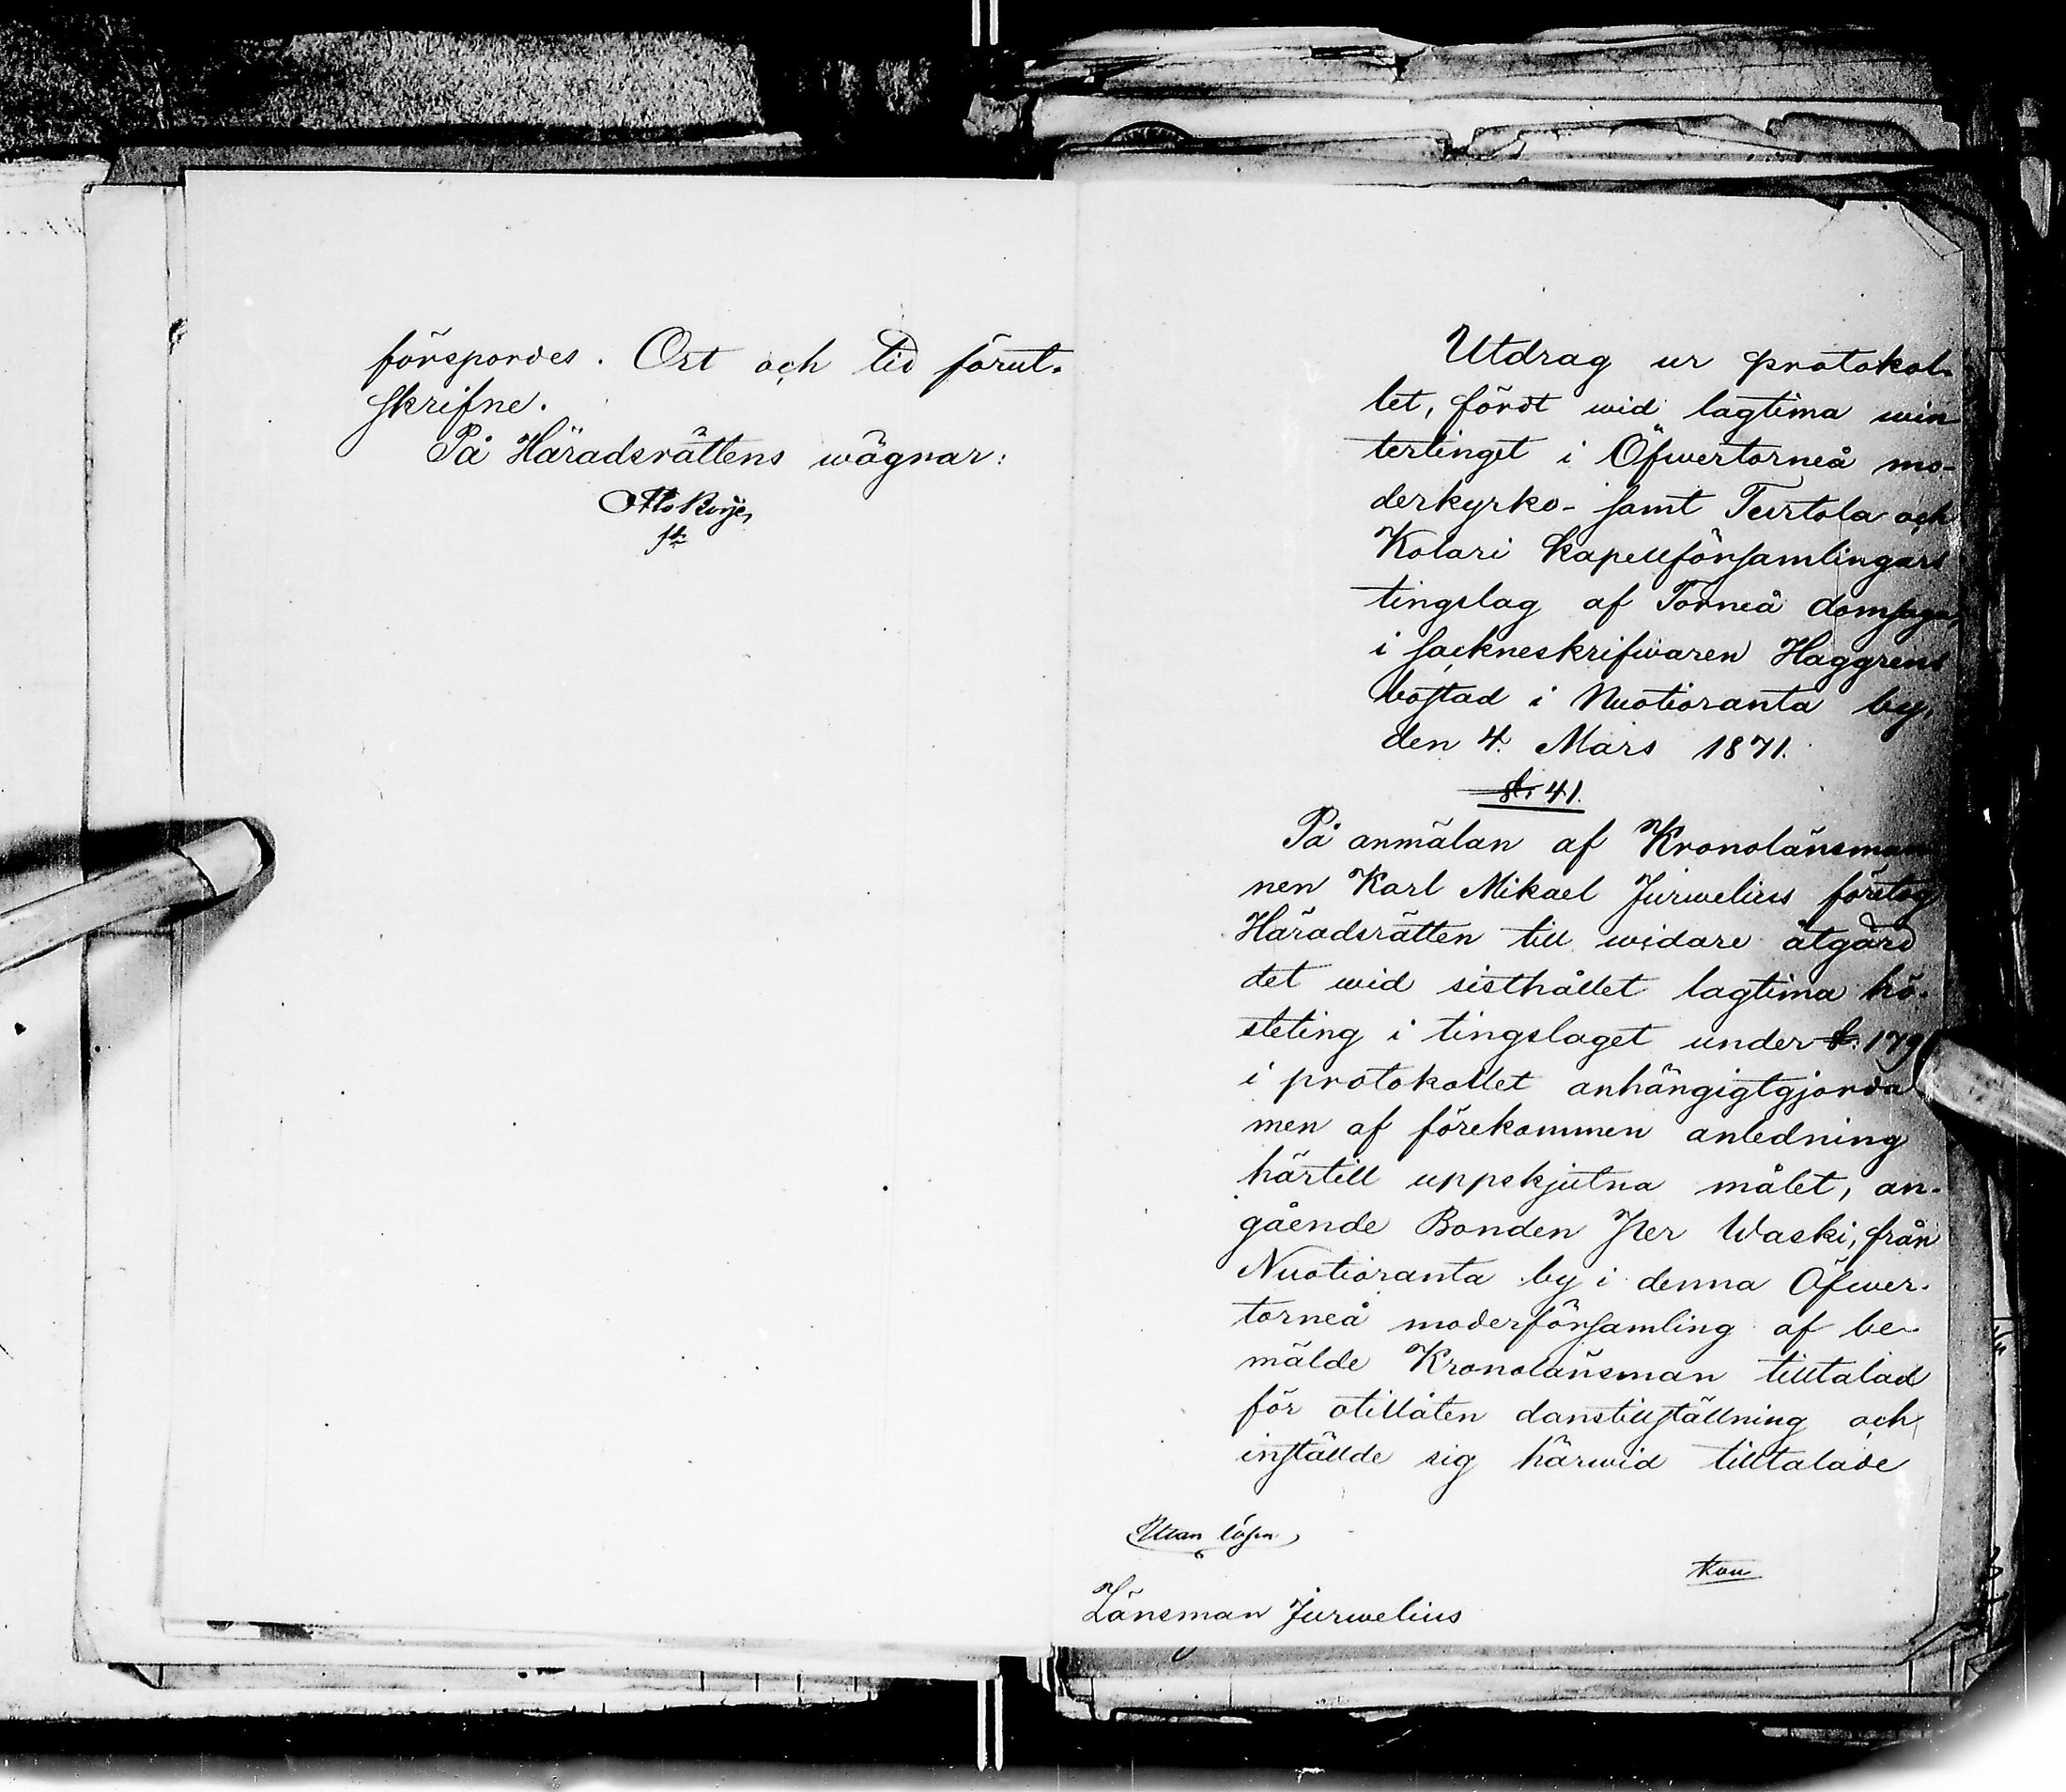 förspordes. Ort och tid förut-
skrifne.
På Häradsrättens wägnar:
Utdrag ur protokol-
let, fördt wid lagtima win
tertinget i Öfwertorneå mo-
derkyrko- samt Turtola och
Kolari kapellförsamlingars
tingslag af Torneå domsaga,
i sockneskrifwaren Haggrens
bostad i Nuotioranta by,
den 4. Mars 1871.
§. 41.
På anmälan af Kronolänsman
nen Karl Mikael Jurwelius företog
Häradsrätten till widare åtgärd
det wid sisthållet lagtima hö-
steting i tingslaget under §. 179
i protokollet anhängigtgjorda
men af förekommen anledning
härtill uppskjutna målet, an-
gående Bonden Per Waski, från
Nuotioranta by i denna Öfwer-
torneå moderförsamling af be-
mälde Kronolänsman tilltalad
för otillåten danstillställning och
inställde sig härwid tilltalade
Utan lösen
Länsman Jurwelius